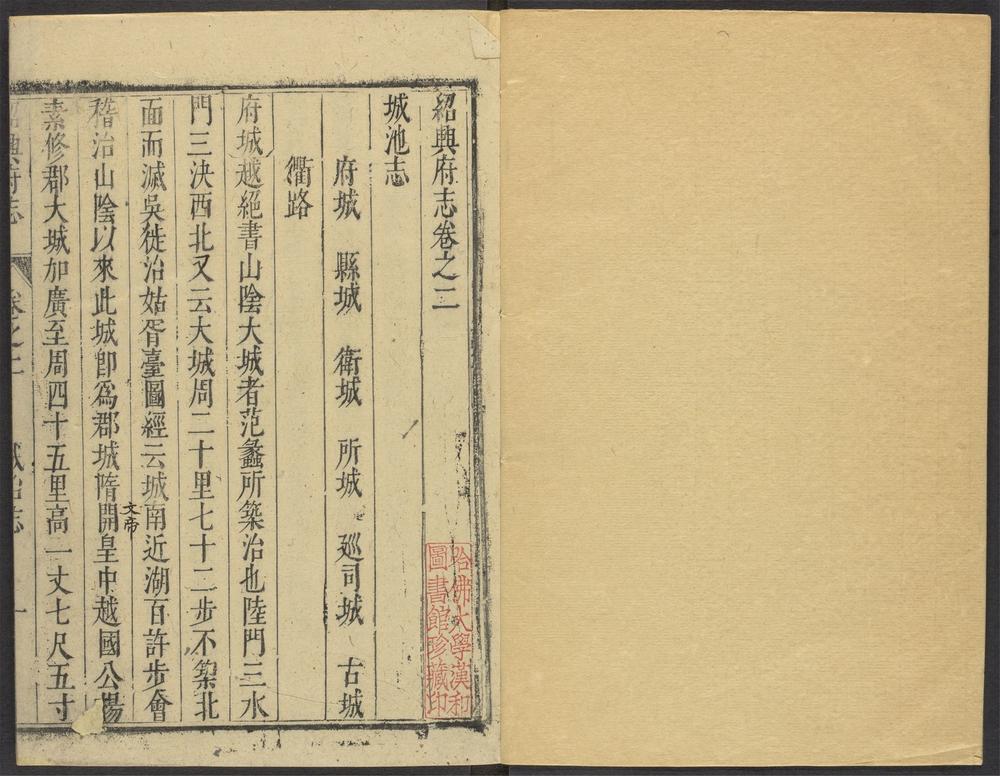 紹興府志卷之二
城池志
府城 縣城 衛城 所城 廵司城 古城
衢路
府城越絕書山陰大城者范蠡所築治也陸門三水
門三決西北又云大城周二十里七十二步不築北
面而滅吳徙治姑胥臺圖經云城南近湖百許步會
稽治山陰以來此城卽爲郡城隋開皇中越國公楊
文帝
素修郡大城加廣至周四十五里高一丈七尺五寸
紹興府志 卷之二 城池志 一
哈佛大學漢和
圖書館珍藏印